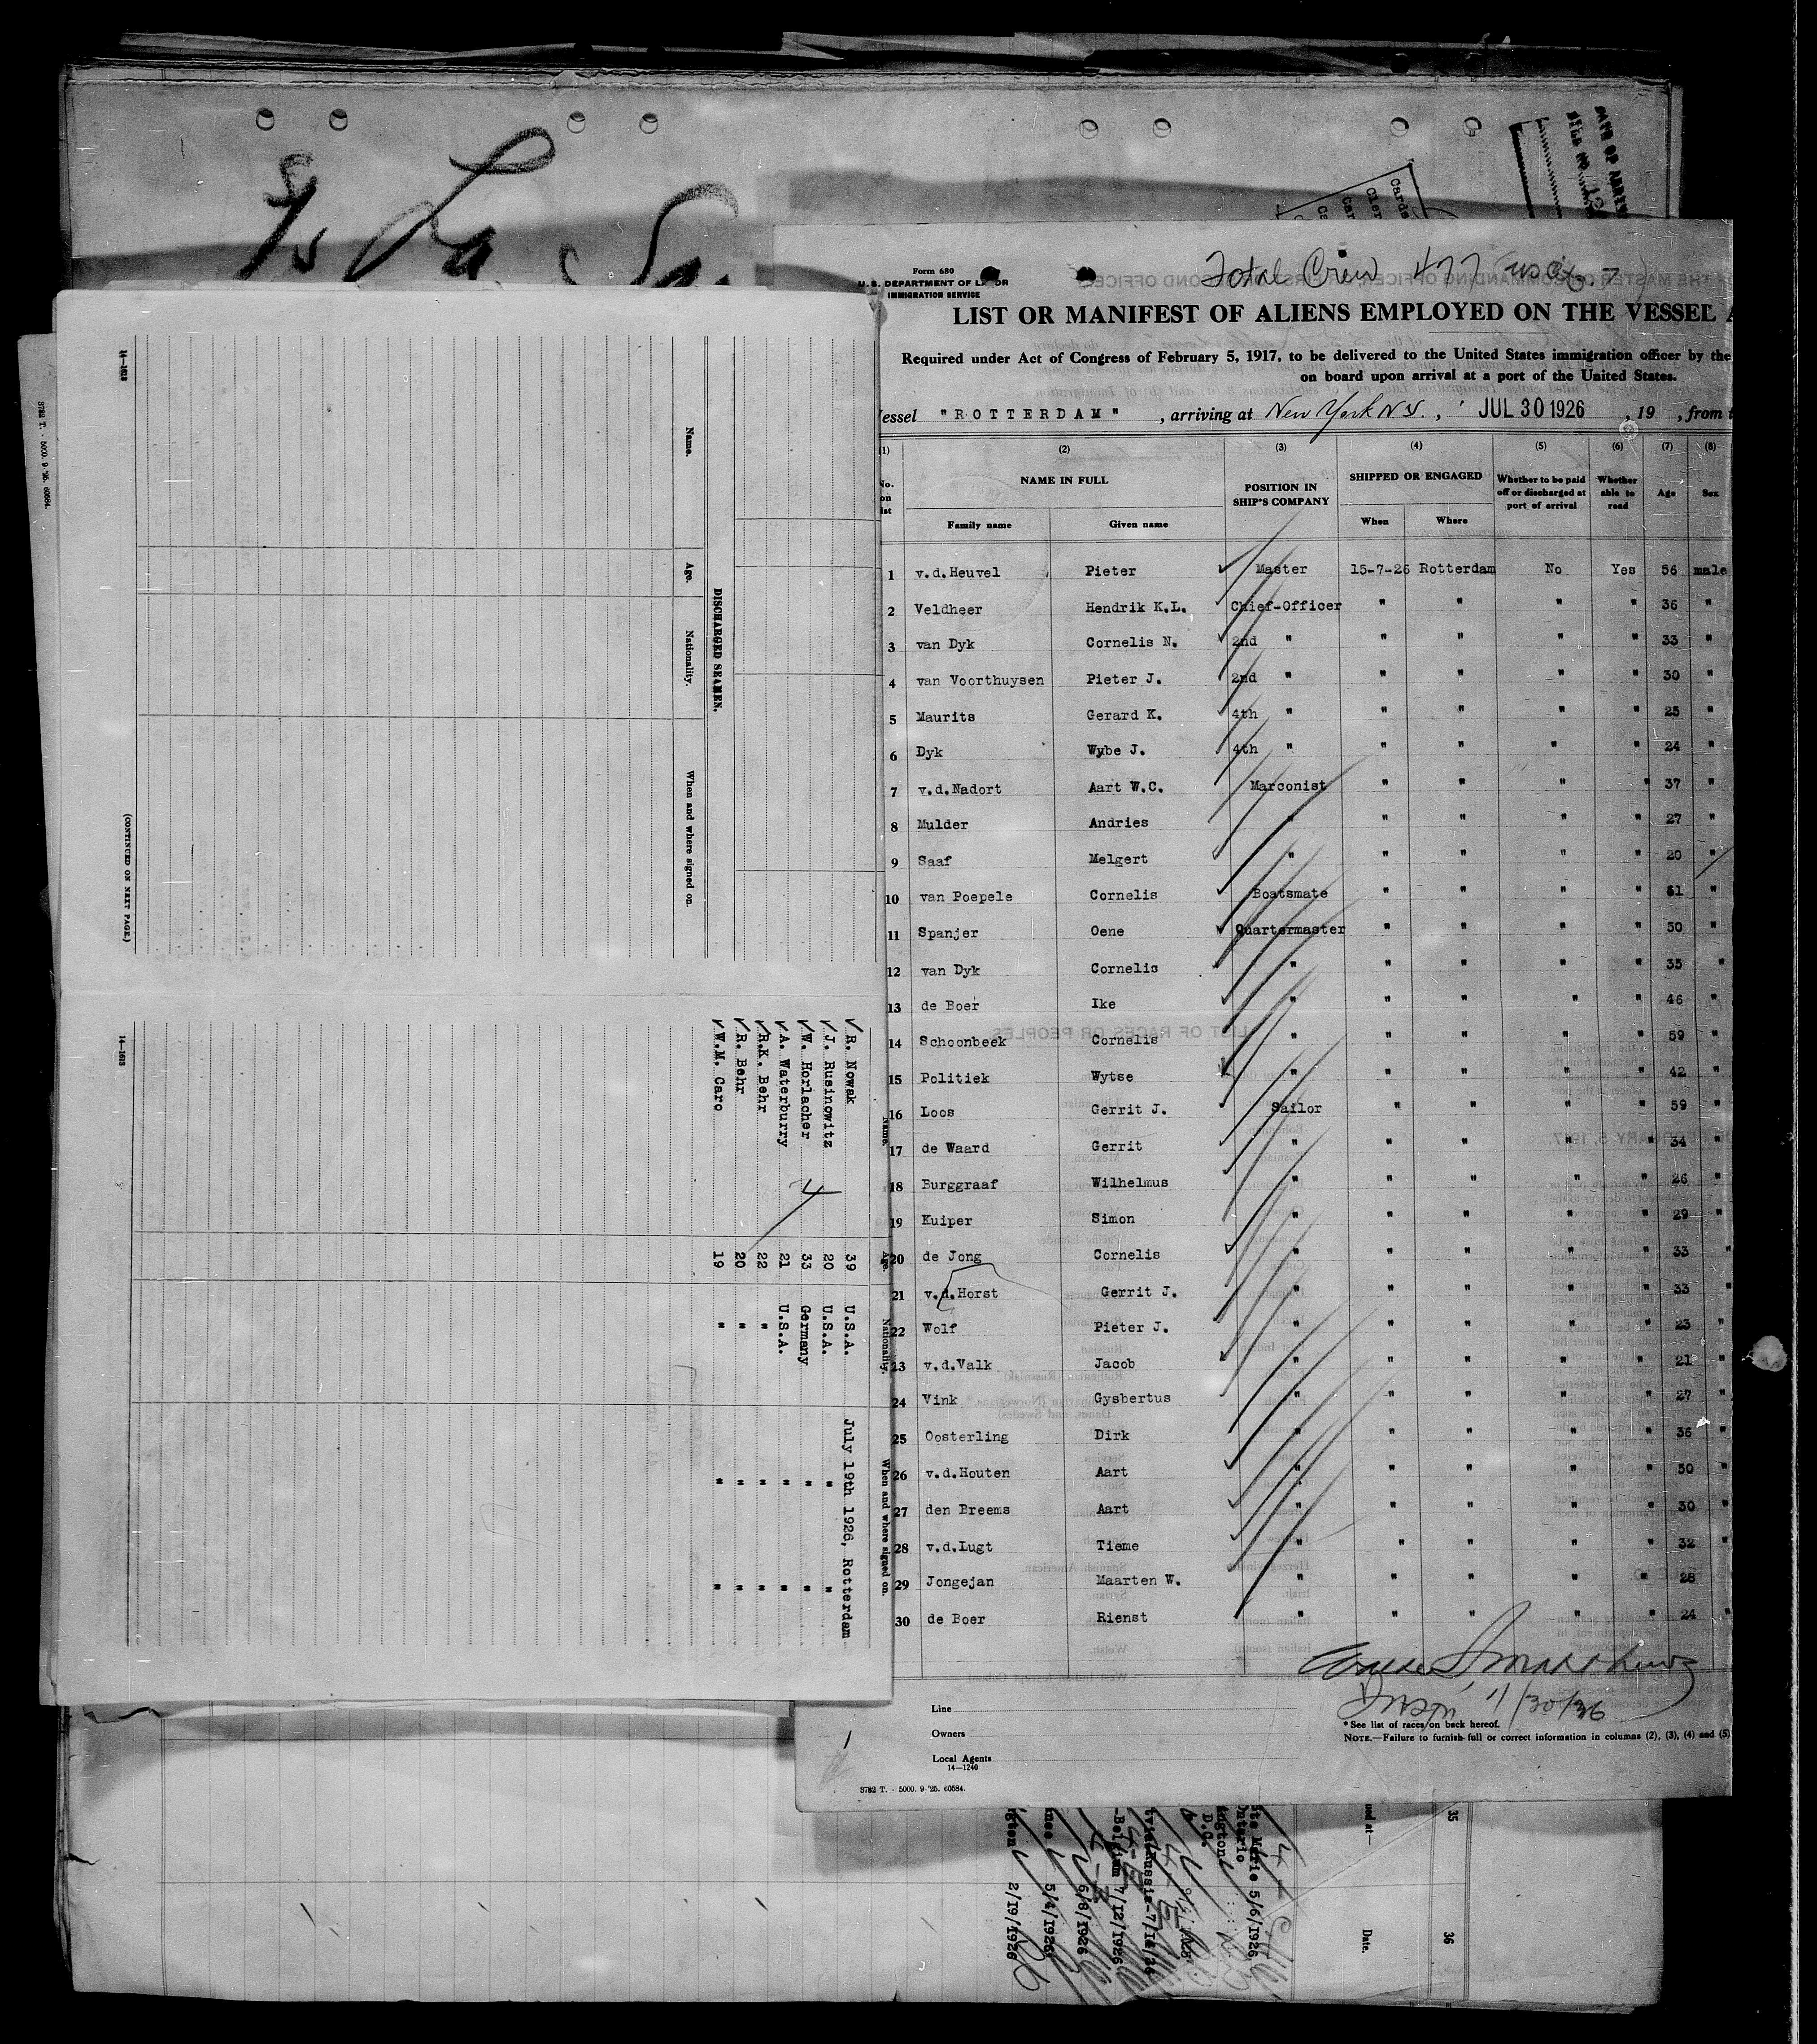 Fs La Sa
DATE OF
FILE No.
Cards
Form 680
U. S. DEPARTMENT OF LABOR
IMMIGRATION SERVICE
Total Crew 477
LIST OR MANIFEST OF ALIENS EMPLOYED ON THE VESSEL A
Required under Act of Congress of February 5, 1917, to be delivered to the United States immigration officer by the
on board upon arrival at a port of the United States.
essel "ROTTERDAM" , arriving at New York N.Y., JUL 30 1926 , 19 , from
(1) (2) (3) (4) (5) (6) (7) (8)
No. on ist NAME IN FULL POSITION IN SHIP'S COMPANY SHIPPED OR ENGAGED Whether to be paid off or discharged at port of arrival Whether able to read Age Sex
Family name Given name When Where
1 v.d.Heuvel Pieter Master 15-7-26 Rotterdam No Yes 56 male
2 Veldheer Hendrik K.L. Chief-Officer " " " " 36 "
3 van Dyk Cornelis N. 2nd " " " " " 33 "
4 van Voorthuysen Pieter J. 2nd " " " " " 30 "
5 Maurits Gerard K. 4th " " " " " 25 "
6 Dyk Wybe J. 4th " " " " " 24 "
7 v.d.Nadort Aart W.C. Marconist " " " " 37 "
8 Mulder Andries " " " " " 27 "
9 Saaf Melgert " " " " " 20 "
10 van Poepele Cornelis Boatsmate " " " " 51 "
11 Spanjer Oene Quartermaster " " " " 50 "
12 van Dyk Cornelis " " " " " 35 "
13 de Boer Ike " " " " " 46 "
14 Schoonbeek Cornelis " " " " " 59 "
15 Politiek Wytse " " " " " 42 "
16 Loos Gerrit J. Sailor " " " " 59 "
17 de Waard Gerrit " " " " " 34 "
18 Burggraaf Wilhelmus " " " " " 26 "
19 Kuiper Simon " " " " " 29 "
20 de Jong Cornelis " " " " " 33 "
21 v.d.Horst Gerrit J. " " " " " 33 "
22 Wolf Pieter J. " " " " " 23 "
23 v.d.Valk Jacob " " " " " 21 "
24 Vink Gysbertus " " " " " 27 "
25 Oosterling Dirk " " " " " 36 "
26 v.d.Houten Aart " " " " " 50 "
27 den Breems Aart " " " " " 30 "
28 v.d.Lugt Tieme " " " " " 32 "
29 Jongejan Maarten W. " " " " " 28 "
30 de Boer Rienst " " " " " 24 "
Line
Owners
Local Agents
14—1240
3782 T. - 5000. 9 '25. 60584.
* See list of races on back hereof.
NOTE.—Failure to furnish full or correct information in columns (2), (3), (4) and (5)
1
DISCHARGED SEAMEN.
Name. Age. Nationality. When and where signed on.
14—1613
(CONTINUED ON NEXT PAGE.)
3782 T. - 5000. 9 '25. 60584.
Name. Age. Nationality. When and where signed on.
R. Nowak 39 U.S.A. July 19th 1926, Rotterdam
J. Rusinowitz 20 U.S.A. " "
W. Horlacher 33 Germany " "
A. Waterburry 21 U.S.A. " "
R.K. Behr 22 " " "
R. Behr 20 " " "
W.M. Caro 19 " " "
4
14—1613
35 36
ned at— Date.
ste Marie 5/6/1926
Ontario
ington
D.C.
Belgium 7/12/1926
6/8/1926
5/4/1926
gton 2/19/1926